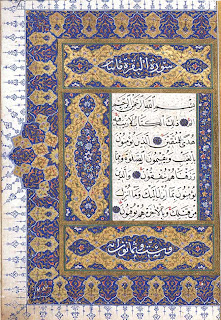 سورة البقرة مائتان
بسم الله الرحمن الرحيم
الم ذلك الكتاب لا ريب
فيه هدى للمتقين الذين يؤمنون
بالغيب ويقيمون الصلوة ومما
رزقناهم ينفقون والذين
يؤمنون بما انزل اليك وما انزل
من قبلك وبالآخرة هم يوقنون
وست وثمانون